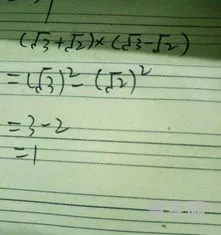 (√3+√2)×(√3-√2)
=(√3)²-(√2)²
=3-2
=1